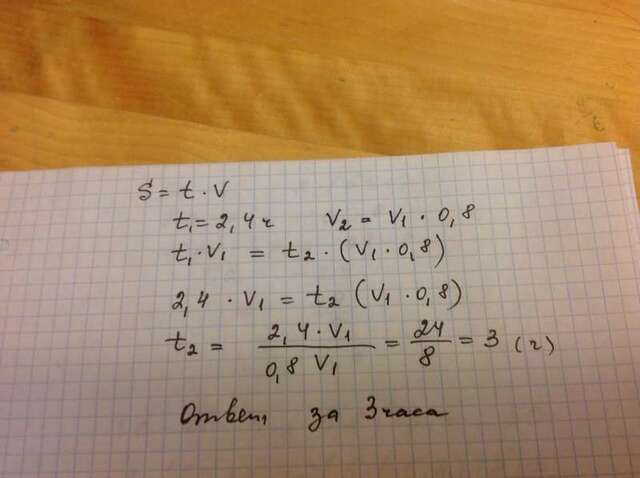 S = t · V
t₁ = 2,4 ч V₂ = V₁ · 0,8
t₁ · V₁ = t₂ · (V₁ · 0,8)
2,4 · V₁ = t₂ (V₁ · 0,8)
t₂ = (2,4 · V₁)/(0,8 V₁) = 24/8 = 3 (ч)
Ответ, за 3 часа